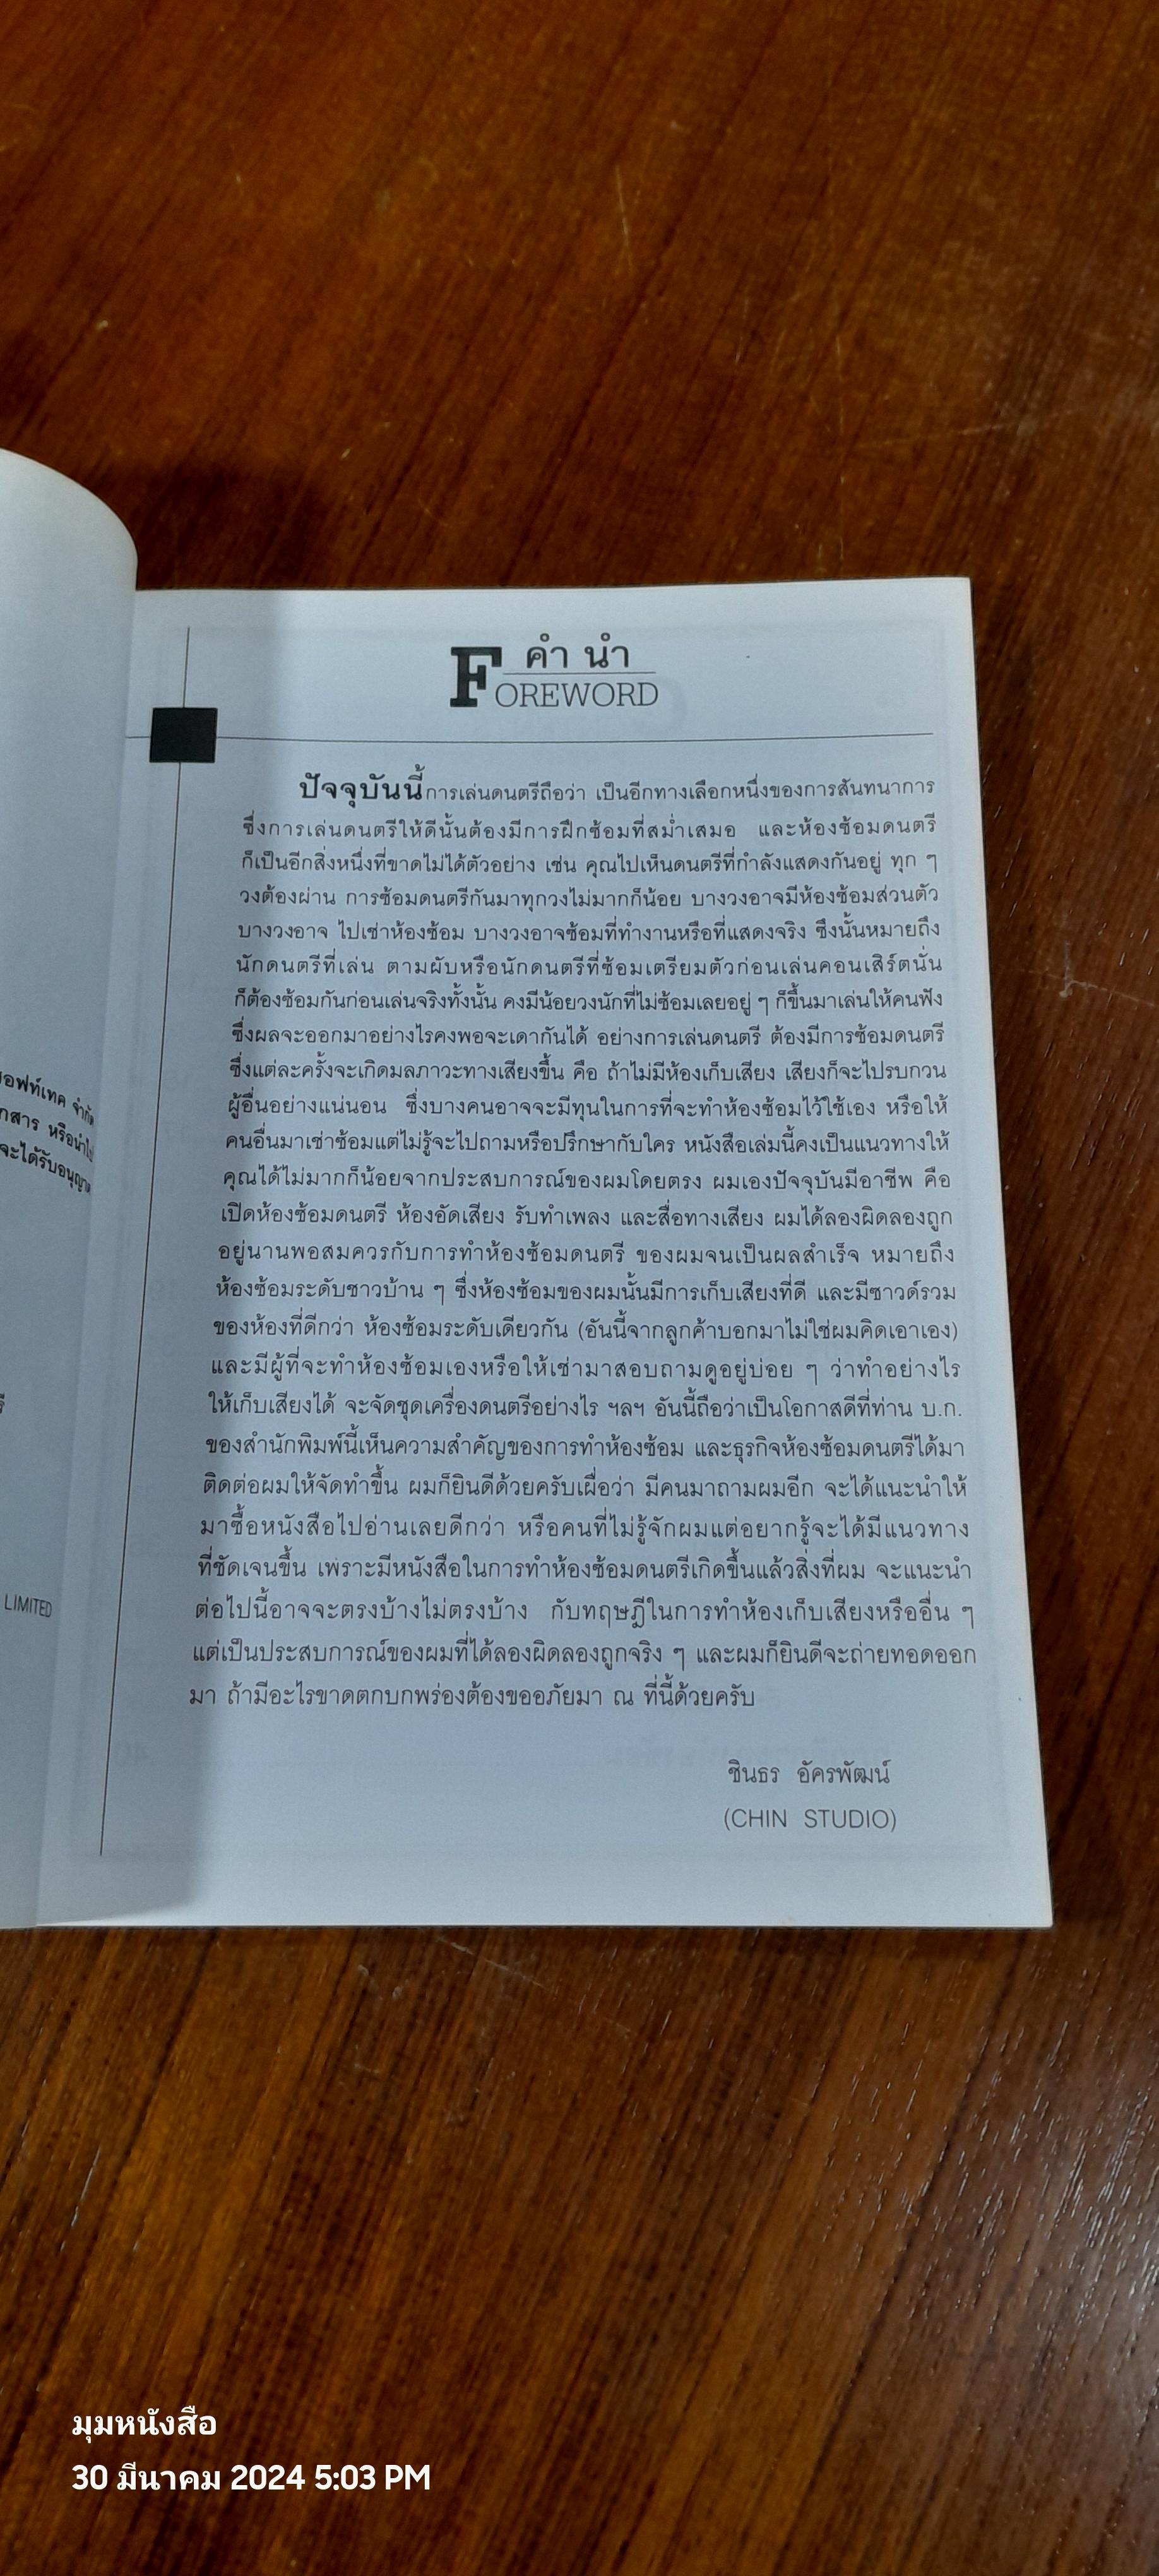 คำ นำ
FOREWORD
ปัจจุบันนี้การเล่นดนตรีถือว่า เป็นอีกทางเลือกหนึ่งของการสันทนาการ
ซึ่งการเล่นดนตรีให้ดีนั้นต้องมีการฝึกซ้อมที่สม่ำเสมอ และห้องซ้อมดนตรี
ก็เป็นอีกสิ่งหนึ่งที่ขาดไม่ได้ตัวอย่าง เช่น คุณไปเห็นดนตรีที่กำลังแสดงกันอยู่ ทุก ๆ
วงต้องผ่าน การซ้อมดนตรีกันมาทุกวงไม่มากก็น้อย บางวงอาจมีห้องซ้อมส่วนตัว
บางวงอาจ ไปเช่าห้องซ้อม บางวงอาจซ้อมที่ทำงานหรือที่แสดงจริง ซึงนั้นหมายถึง
นักดนตรีที่เล่น ตามผับหรือนักดนตรีที่ซ้อมเตรียมตัวก่อนเล่นคอนเสิร์ตนั่น
ก็ต้องซ้อมกันก่อนเล่นจริงทั้งนั้น คงมีน้อยวงนักที่ไม่ซ้อมเลยอยู่ ๆ ก็ขึ้นมาเล่นให้คนฟัง
ซึ่งผลจะออกมาอย่างไรคงพอจะเดากันได้ อย่างการเล่นดนตรี ต้องมีการซ้อมดนตรี
ซึ่งแต่ละครั้งจะเกิดมลภาวะทางเสียงขึ้น คือ ถ้าไม่มีห้องเก็บเสียง เสียงก็จะไปรบกวน
ผู้อื่นอย่างแน่นอน ซึ่งบางคนอาจจะมีทุนในการที่จะทำห้องซ้อมไว้ใช้เอง หรือให้
คนอื่นมาเช่าซ้อมแต่ไม่รู้จะไปถามหรือปรึกษากับใคร หนังสือเล่มนี้คงเป็นแนวทางให้
คุณได้ไม่มากก็น้อยจากประสบการณ์ของผมโดยตรง ผมเองปัจจุบันมีอาชีพ คือ
เปิดห้องซ้อมดนตรี ห้องอัดเสียง รับทำเพลง และสื่อทางเสียง ผมได้ลองผิดลองถูก
อยู่นานพอสมควรกับการทำห้องซ้อมดนตรี ของผมจนเป็นผลสำเร็จ หมายถึง
ห้องซ้อมระดับชาวบ้าน ๆ ซึ่งห้องซ้อมของผมนั้นมีการเก็บเสียงที่ดี และมีซาวด์รวม
ของห้องที่ดีกว่า ห้องซ้อมระดับเดียวกัน (อันนี้จากลูกค้าบอกมาไม่ใช่ผมคิดเอาเอง)
และมีผู้ที่จะทำห้องซ้อมเองหรือให้เช่ามาสอบถามดูอยู่บ่อย ๆ ว่าทำอย่างไร
ให้เก็บเสียงได้ จะจัดชุดเครื่องดนตรีอย่างไร ฯลฯ อันนี้ถือว่าเป็นโอกาสดีที่ท่าน บ.ก.
ของสำนักพิมพ์นี้เห็นความสำคัญของการทำห้องซ้อม และธุรกิจห้องซ้อมดนตรีได้มา
ติดต่อผมให้จัดทำขึ้น ผมก็ยินดีด้วยครับเผื่อว่า มีคนมาถามผมอีก จะได้แนะนำให้
มาซื้อหนังสือไปอ่านเลยดีกว่า หรือคนที่ไม่รู้จักผมแต่อยากรู้จะได้มีแนวทาง
ที่ชัดเจนขึ้น เพราะมีหนังสือในการทำห้องซ้อมดนตรีเกิดขึ้นแล้วสิ่งที่ผม จะแนะนำ
ต่อไปนี้อาจจะตรงบ้างไม่ตรงบ้าง กับทฤษฎีในการทำห้องเก็บเสียงหรืออื่น ๆ
แต่เป็นประสบการณ์ของผมที่ได้ลองผิดลองถูกจริง ๆ และผมก็ยินดีจะถ่ายทอดออก
มา ถ้ามีอะไรขาดตกบกพร่องต้องขออภัยมา ณ ที่นี้ด้วยครับ
ชินธร อัครพัฒน์
(CHIN STUDIO)
อฟท์เทค จำกัด
กสาร หรือนำไป
จะได้รับอนุญาต
LIMITED
มุมหนังสือ
30 มีนาคม 2024 5:03 PM